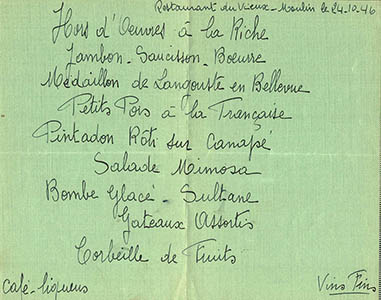 Restaurant du Vieux-Moulin le 24.10.46
Hors d'Oeuvres à la Riche
Jambon-Saucisson-Beurre
Médaillon de Langouste en Bellevue
Petits Pois à la Française
Pintadon Rôti sur Canapé
Salade Mimosa
Bombe Glacé-Sultane
Gateaux Assortis
Corbeille de Fruits
Café-liqueurs
Vins Fins